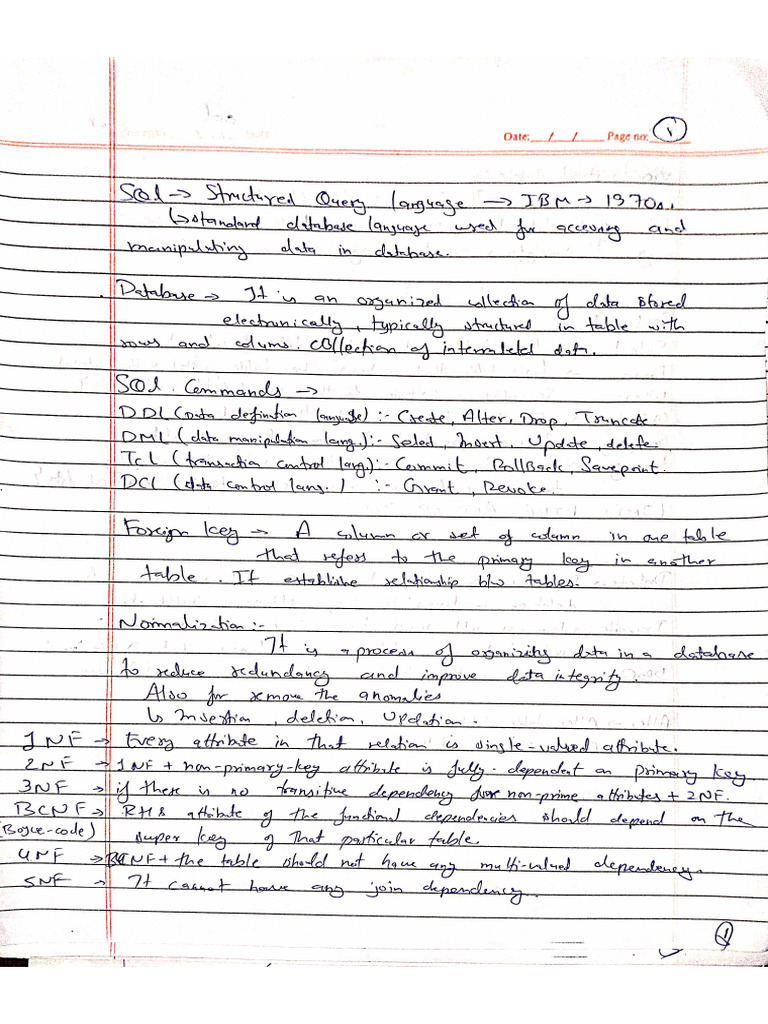 Date: / / Page no: 1
SQL → Structured Query language → IBM → 1970s.
↳ standard database language used for accessing and
manipulating data in database.
Database → It is an organized collection of data stored
electronically, typically structured in table with
rows and colums. collection of interrelated data.
SQL Commands →
DDL (Data definition language) :- Create, Alter, Drop, Truncate
DML (data manipulation lang.) :- Select, Insert, Update, delete.
TCL (transaction control lang.) :- Commit, RollBack, Savepoint
DCL (data control lang.) :- Grant, Revoke.
Foreign key → A column or set of column in one table
that refers to the primary key in another
table. It establishe relationship b/w tables.
Normalization :-
It is a process of organizing data in a database
to reduce redundancy and improve data integrity.
Also for remove the anomalies
↳ Insertion, deletion, Updation.
1NF → Every attribute in that relation is single-valued attribute.
2NF → 1NF + non-primary-key attribute is fully-dependent on primary key
3NF → if there is no transitive dependency for non-prime attributes + 2NF.
BCNF → RHS attribute of the functional dependencies should depend on the
(Boyce-code) super key of that particular table.
4NF → BCNF + the table should not have any multi-valued dependency.
5NF → It cannot have any join dependency.
1